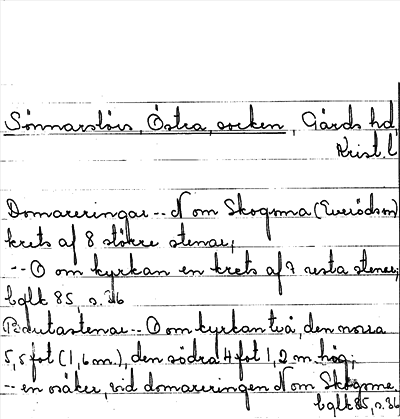 Sönnarslövs, Östra, socken, Gärds hd,
Krist. l
Domareringar -- N om Skogsma (Everödsån)
krets af 8 större stenar,
-- O om kyrkan en krets af 7 resta stenar;
bglk 85, s. 36
Bautastenar -- O om kyrkan två, den norra
5,5 fot (1,6 m.), den södra 4 fot 1,2 m. hög;
-- en osäker, vid domareringen N om Skogsma.
bglk 85, s. 36